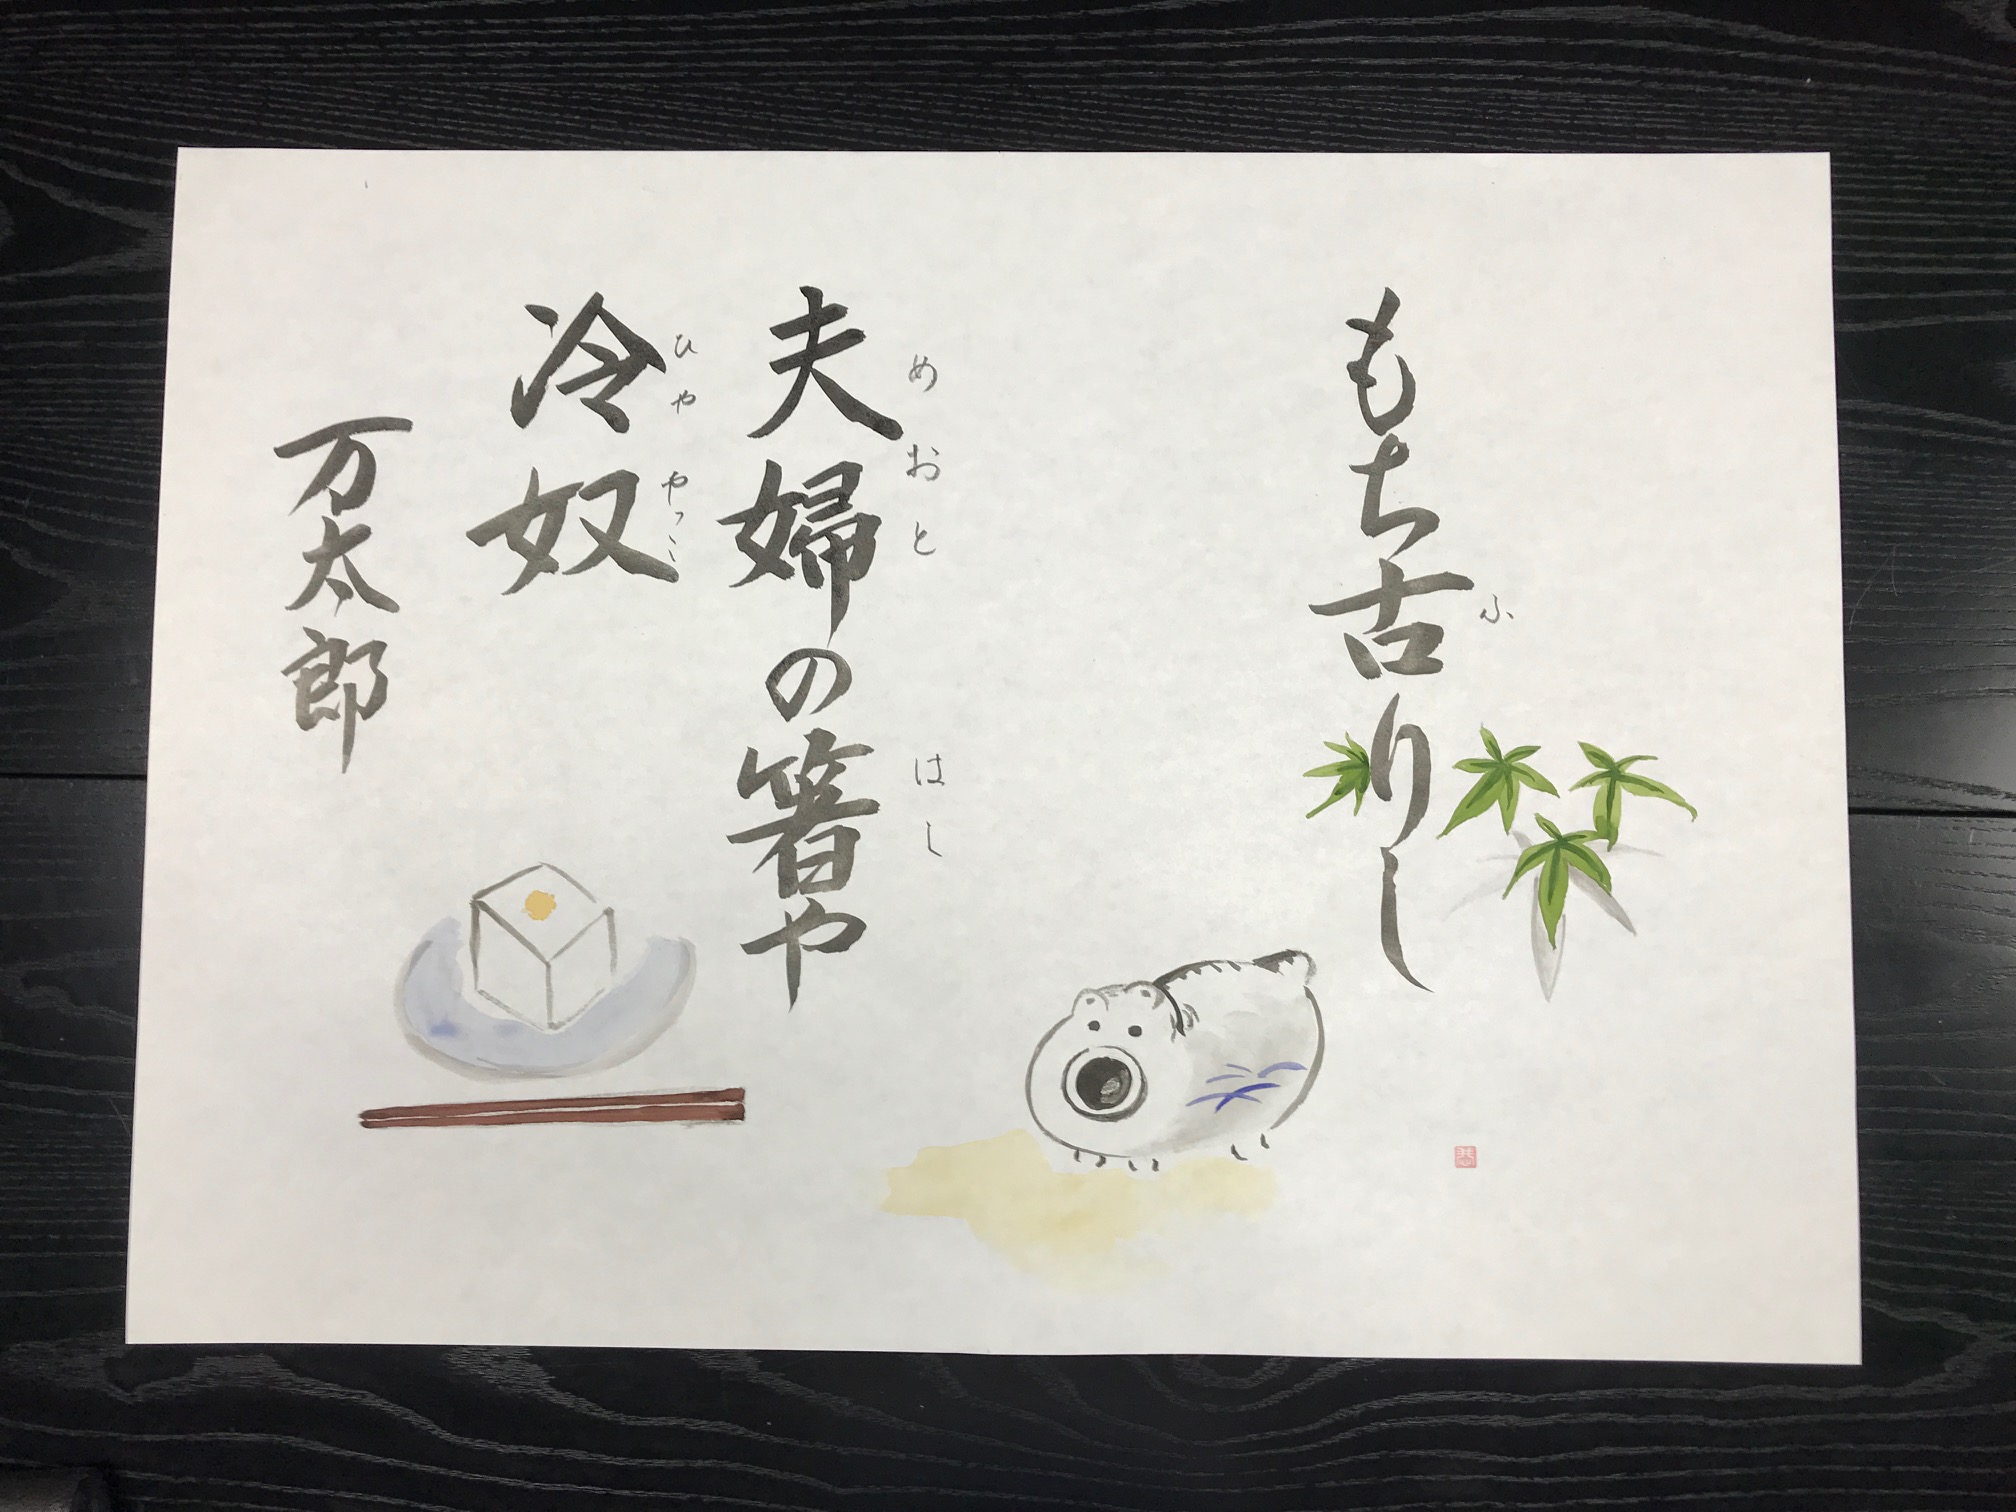 もち古りし
ふ
夫婦の箸や
めおと
はし
冷奴
ひややっこ
万太郎